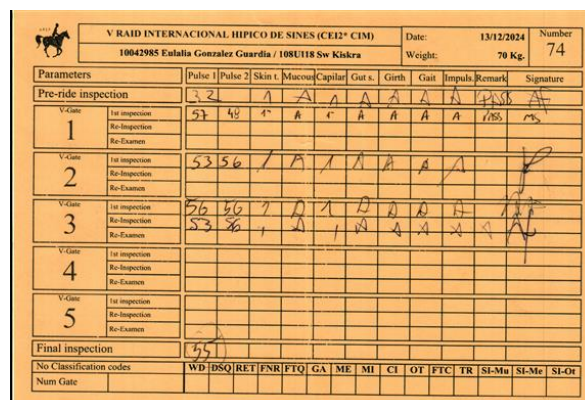 V RAID INTERNACIONAL HIPICO DE SINES (CEI2* CIM) Date: 13/12/2024 Number
10042985 Eulalia Gonzalez Guardia / 108UI18 Sw Kiskra Weight: 70 Kg. 74
Parameters Pulse 1 Pulse 2 Skin t. Mucous Capilar Gut s. Girth Gait Impuls. Remark Signature
Pre-ride inspection 32 1 A 1 A A A A PASS
V-Gate 1 1st inspection 57 48 1" A 1" A A A A PASS MS
Re-Inspection
Re-Examen
V-Gate 2 1st inspection 53 56 1 A 1 A A A A
Re-Inspection
Re-Examen
V-Gate 3 1st inspection 56 56 1 A 1 A A A A
Re-Inspection 53 56 1 A 1 A A A A
Re-Examen
V-Gate 4 1st inspection
Re-Inspection
Re-Examen
V-Gate 5 1st inspection
Re-Inspection
Re-Examen
Final inspection 55
No Classification codes WD DSQ RET FNR FTQ GA ME MI CI OT FTC TR SI-Mu SI-Me SI-Ot
Num Gate